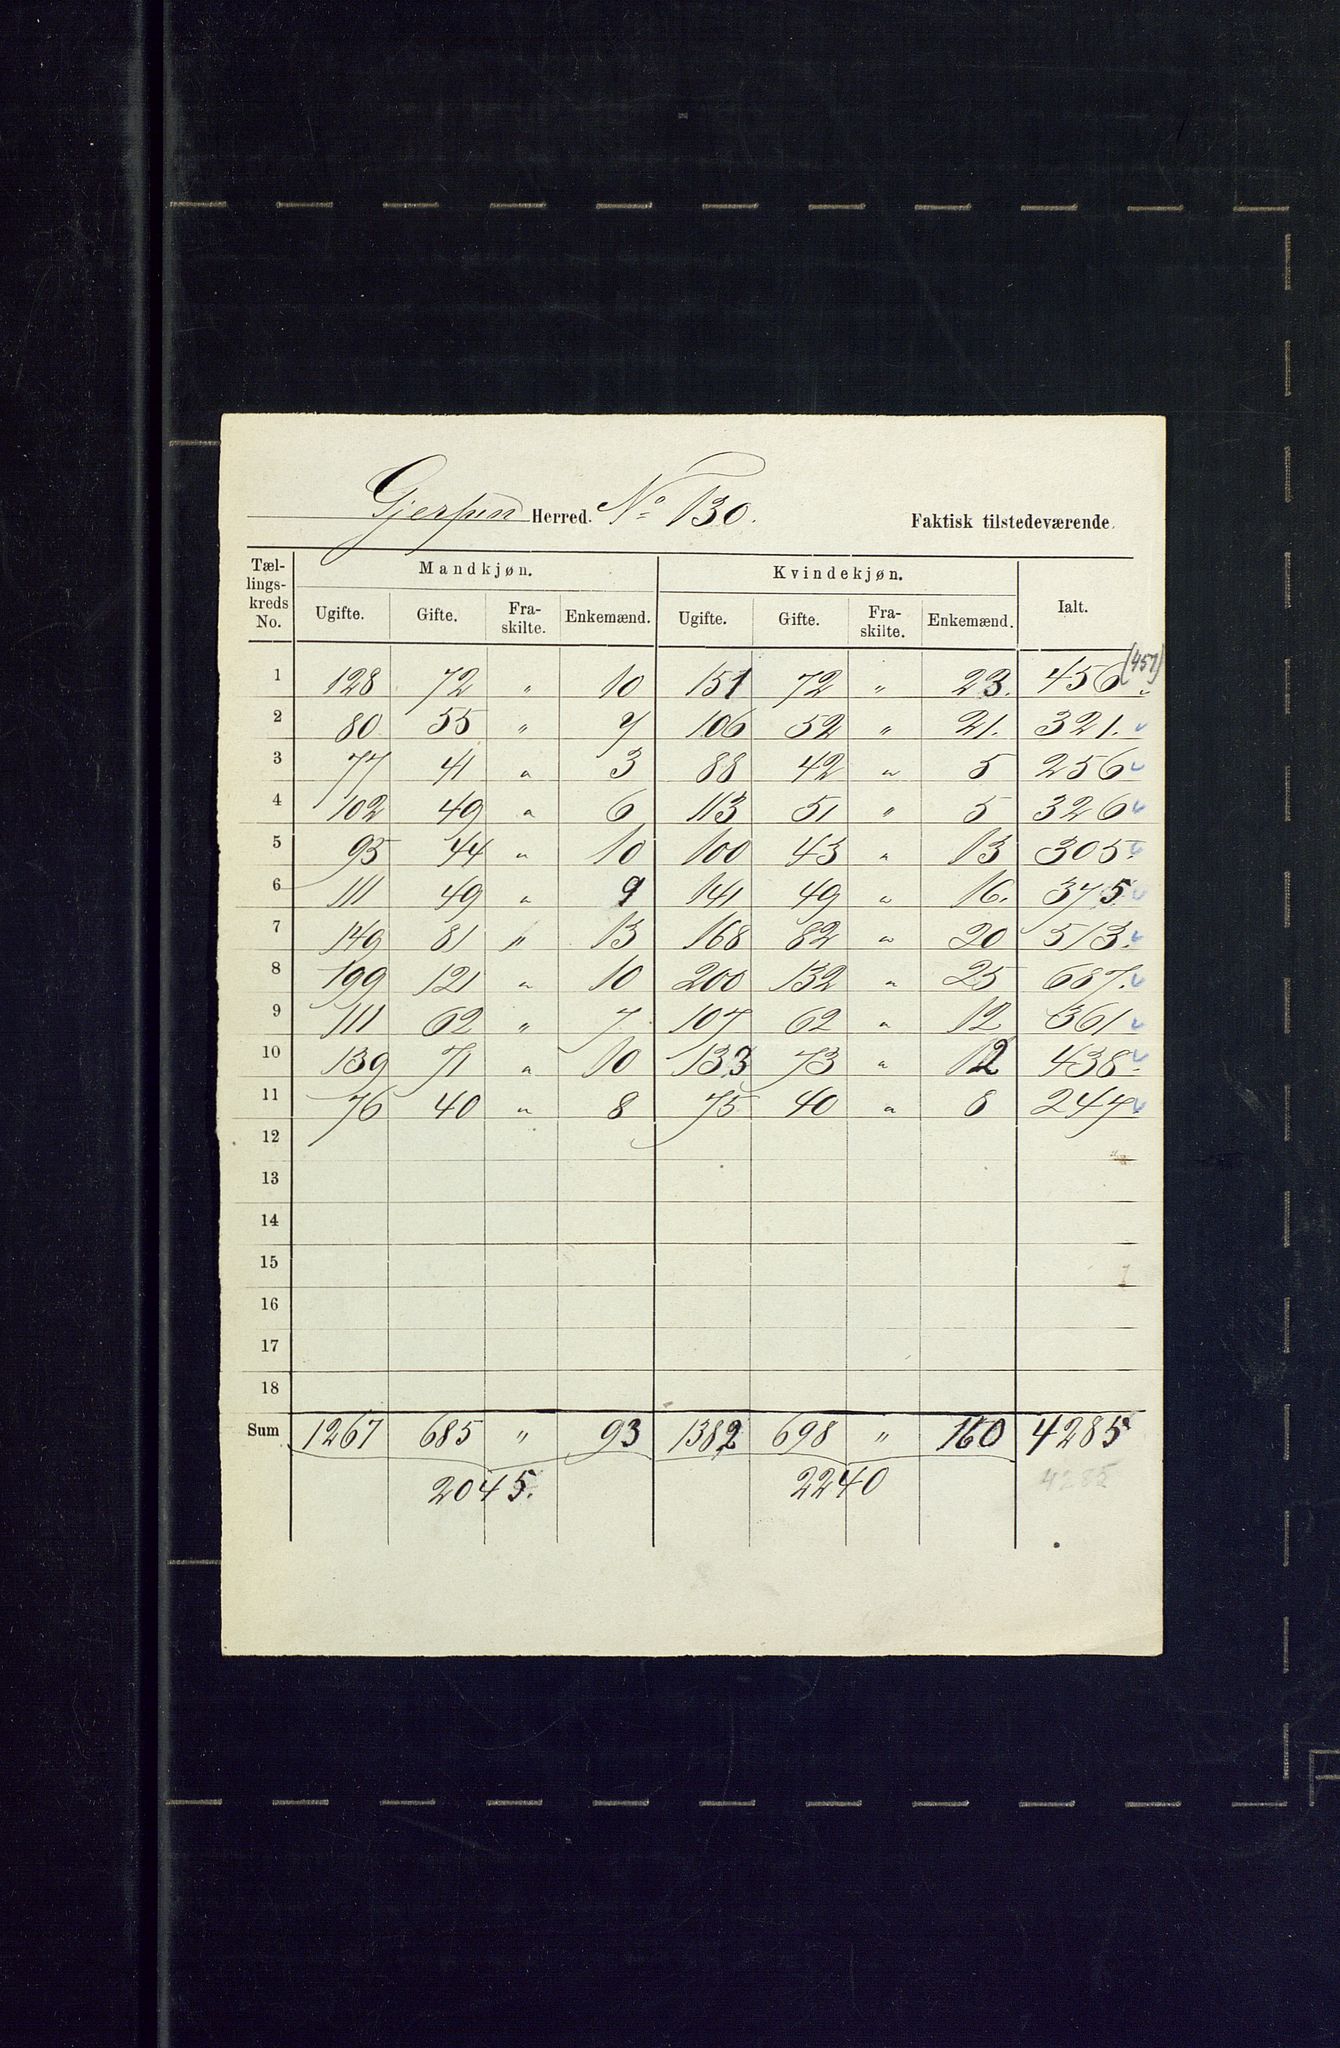 Gjerpen Herred. No 130.
Faktisk tilstedeværende.
Tællingskreds No. Mandkjøn. Kvindekjøn. Ialt.
Ugifte. Gifte. Fraskilte. Enkemænd. Ugifte. Gifte. Fraskilte. Enkemænd.
1 128 72 " 10 151 72 " 23. 456. (457)
2 80 55 " 7 106 52 " 21. 321.
3 77 41 " 3 88 42 " 5 256
4 102 49 " 6 113 51 " 5 326
5 95 44 " 10 100 43 " 13 305.
6 111 49 " 9 141 49 " 16. 375
7 149 81 " 13 168 82 " 20 513.
8 199 121 " 10 200 132 " 25 687.
9 111 62 " 7 107 62 " 12 361
10 139 71 " 10 133 73 " 12 438.
11 76 40 " 8 75 40 " 8 247
12
13
14
15
16
17
18
Sum 1267 685 " 93 1382 698 " 160 4285
2045. 2240 4285